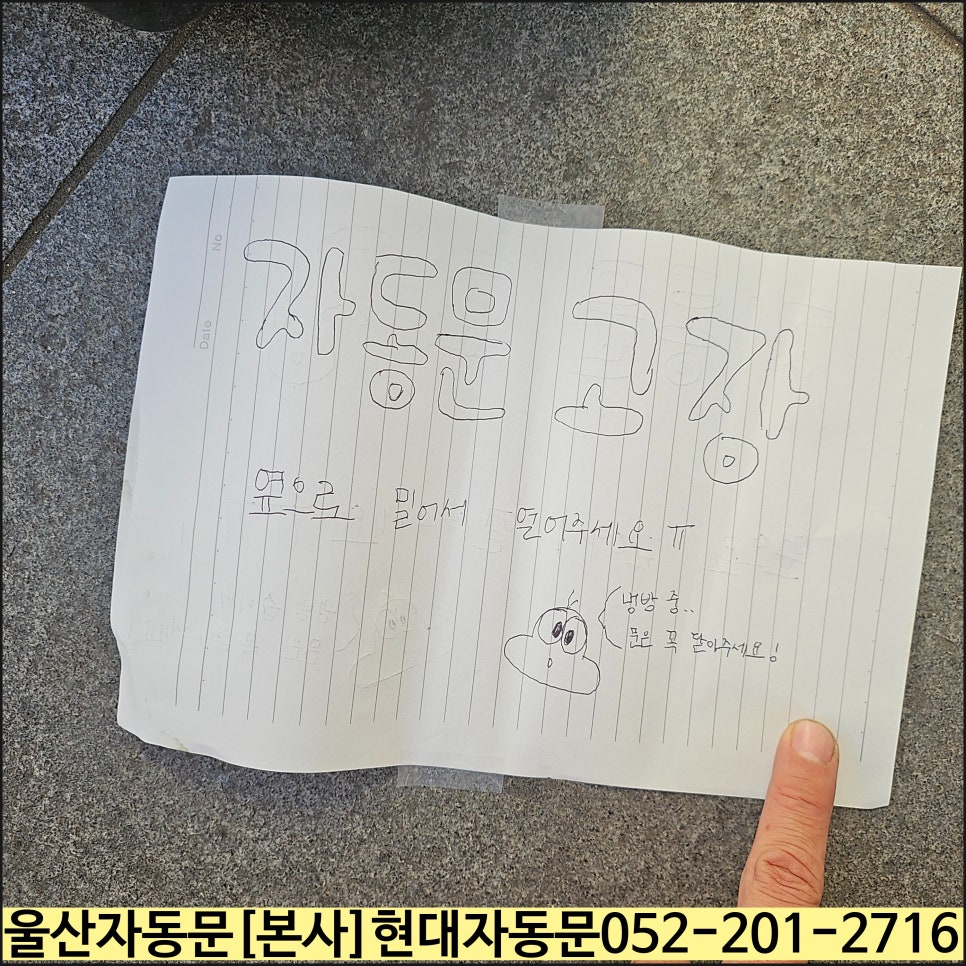 No
Date
자동문 고장
옆으로 밀어서 열어주세요 ㅠ
냉방 중..
문은 꼭 닫아주세요!
울산자동문[본사]현대자동문052-201-2716